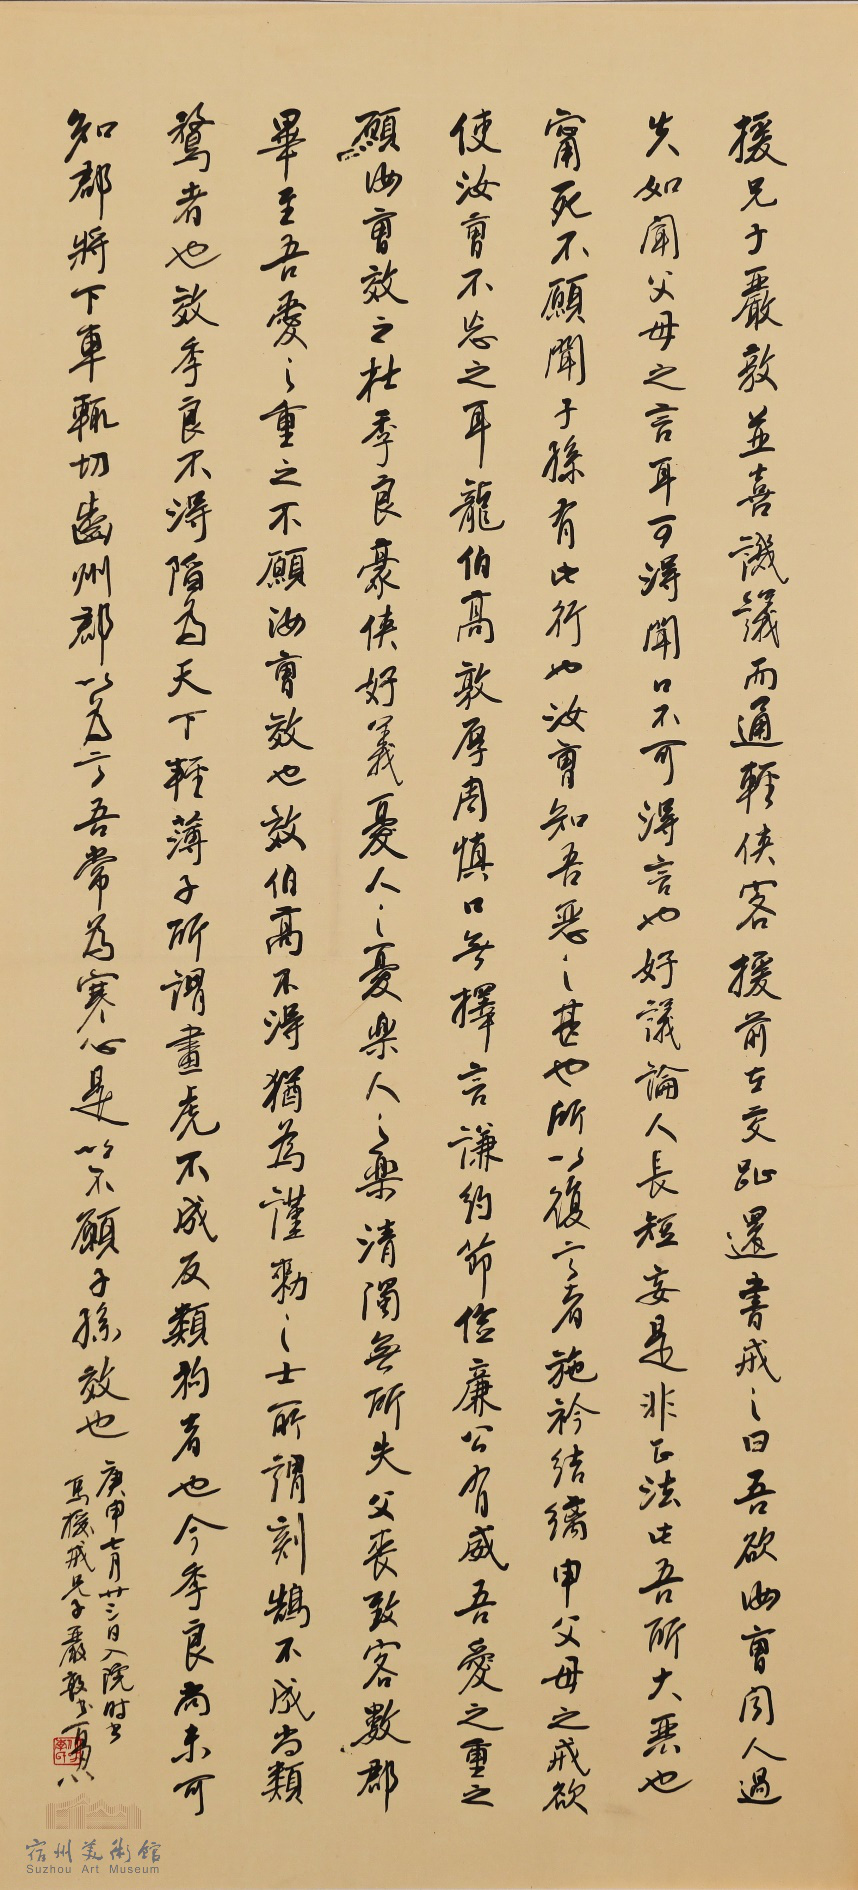 援兄子嚴敦並喜譏議而通輕俠客援前在交趾還書戒之曰吾欲汝曹聞人過
失如聞父母之言耳可得聞口不可得言也好議論人長短妄是非正法此吾所大惡也
寧死不願聞子孫有此行也汝曹知吾惡之甚也所以復言者施衿結縭申父母之戒欲
使汝曹不忘之耳龍伯高敦厚周慎口無擇言謙約節儉廉公有威吾愛之重之
願汝曹效之杜季良豪俠好義憂人之憂樂人之樂清濁無所失父喪致客數郡
畢至吾愛之重之不願汝曹效也效伯高不得猶為謹勑之士所謂刻鵠不成尚類
鶩者也效季良不得陷為天下輕薄子所謂畫虎不成反類狗者也今季良尚未可
知郡將下車輒切齒州郡以為言吾常為寒心是以不願子孫效也
庚申七月廿三日入院時書
馬援戒兄子嚴敦書
宿州美術館
Suzhou Art Museum